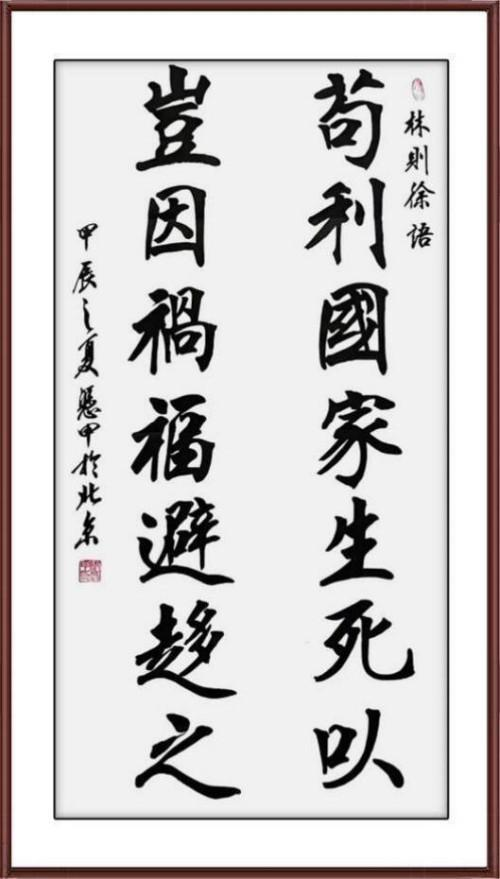 林則徐語
苟利國家生死以
豈因禍福避趍之
甲辰之夏 甲於北京